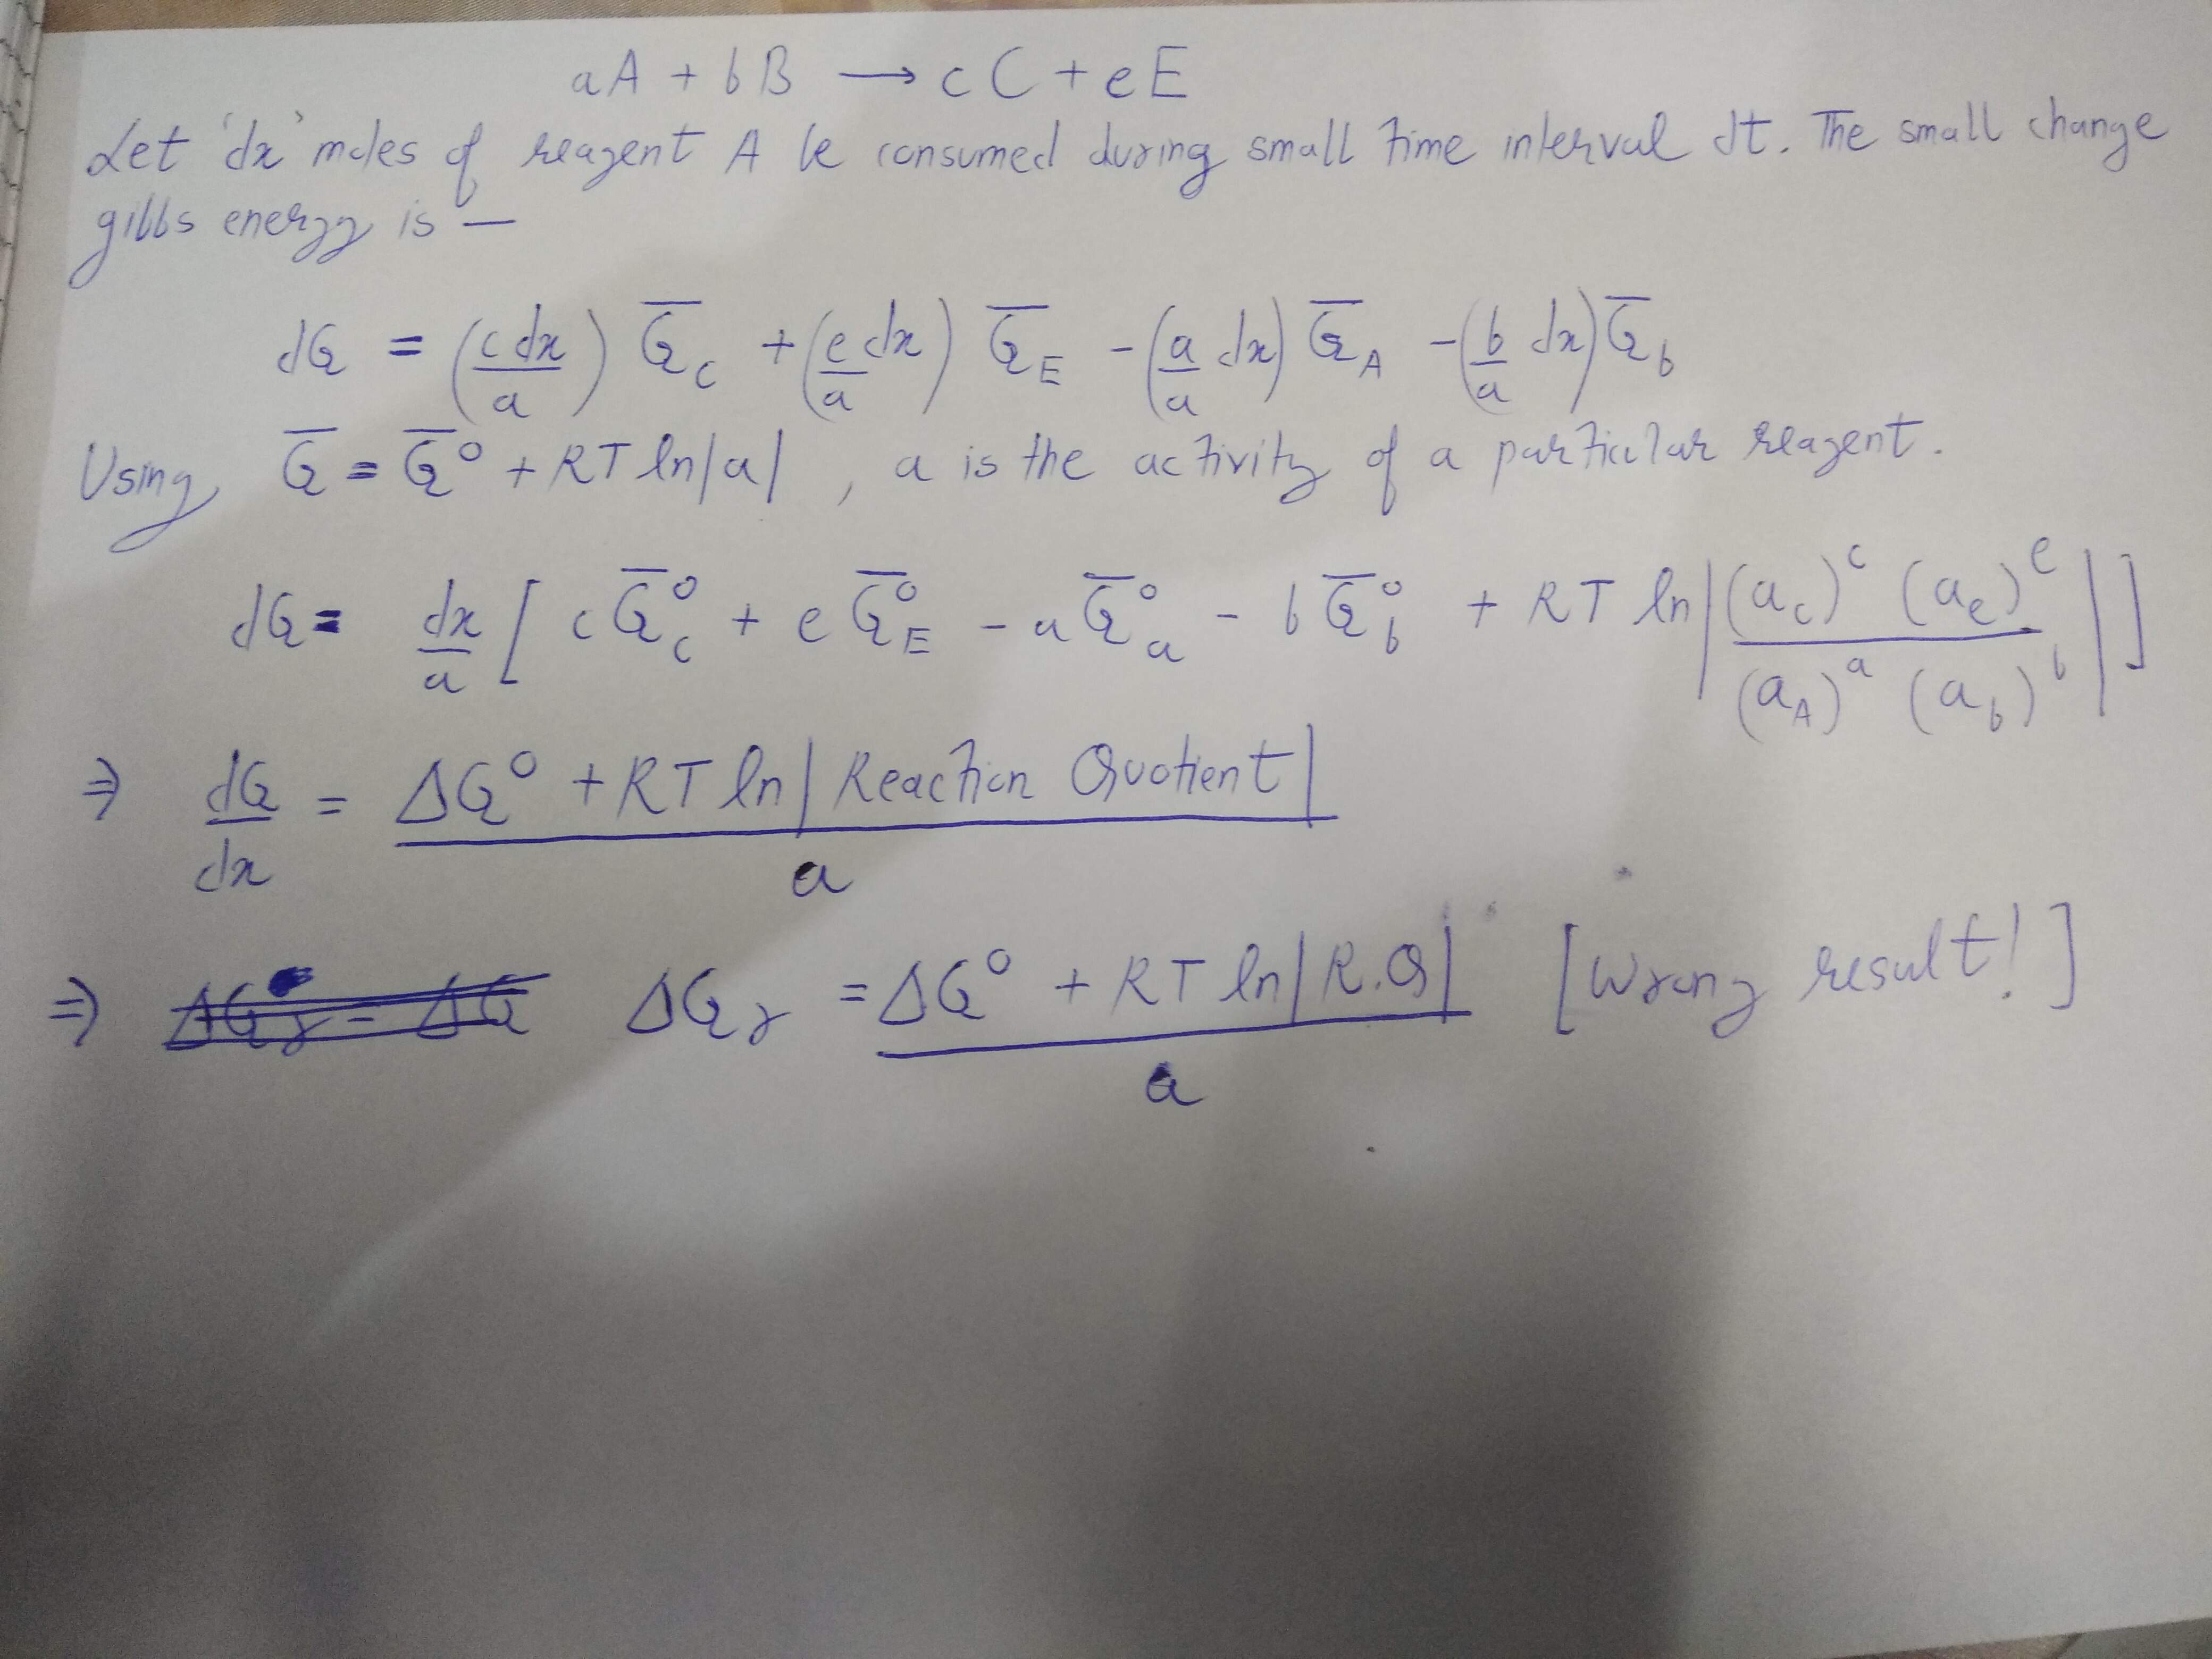 aA + bB → cC + eE
Let 'dx' moles of reagent A be consumed during small time interval dt. The small change
gibbs energy is —
dG = (c dx/a) G̅_C + (e/a dx) G̅_E - (a/a dx) G̅_A - (b/a dx) G̅_b
Using, G̅ = G̅° + RT ln|a| , a is the activity of a particular reagent.
dG = dx/a [ c G̅°_C + e G̅°_E - a G̅°_a - b G̅°_b + RT ln| (a_c)^c (a_e)^e / (a_A)^a (a_b)^b | ]
⇒ dG/dx = ΔG° + RT ln| Reaction Quotient | / a
⇒ ΔG_r = ΔG° + RT ln|R.Q| / a [Wrong result!]